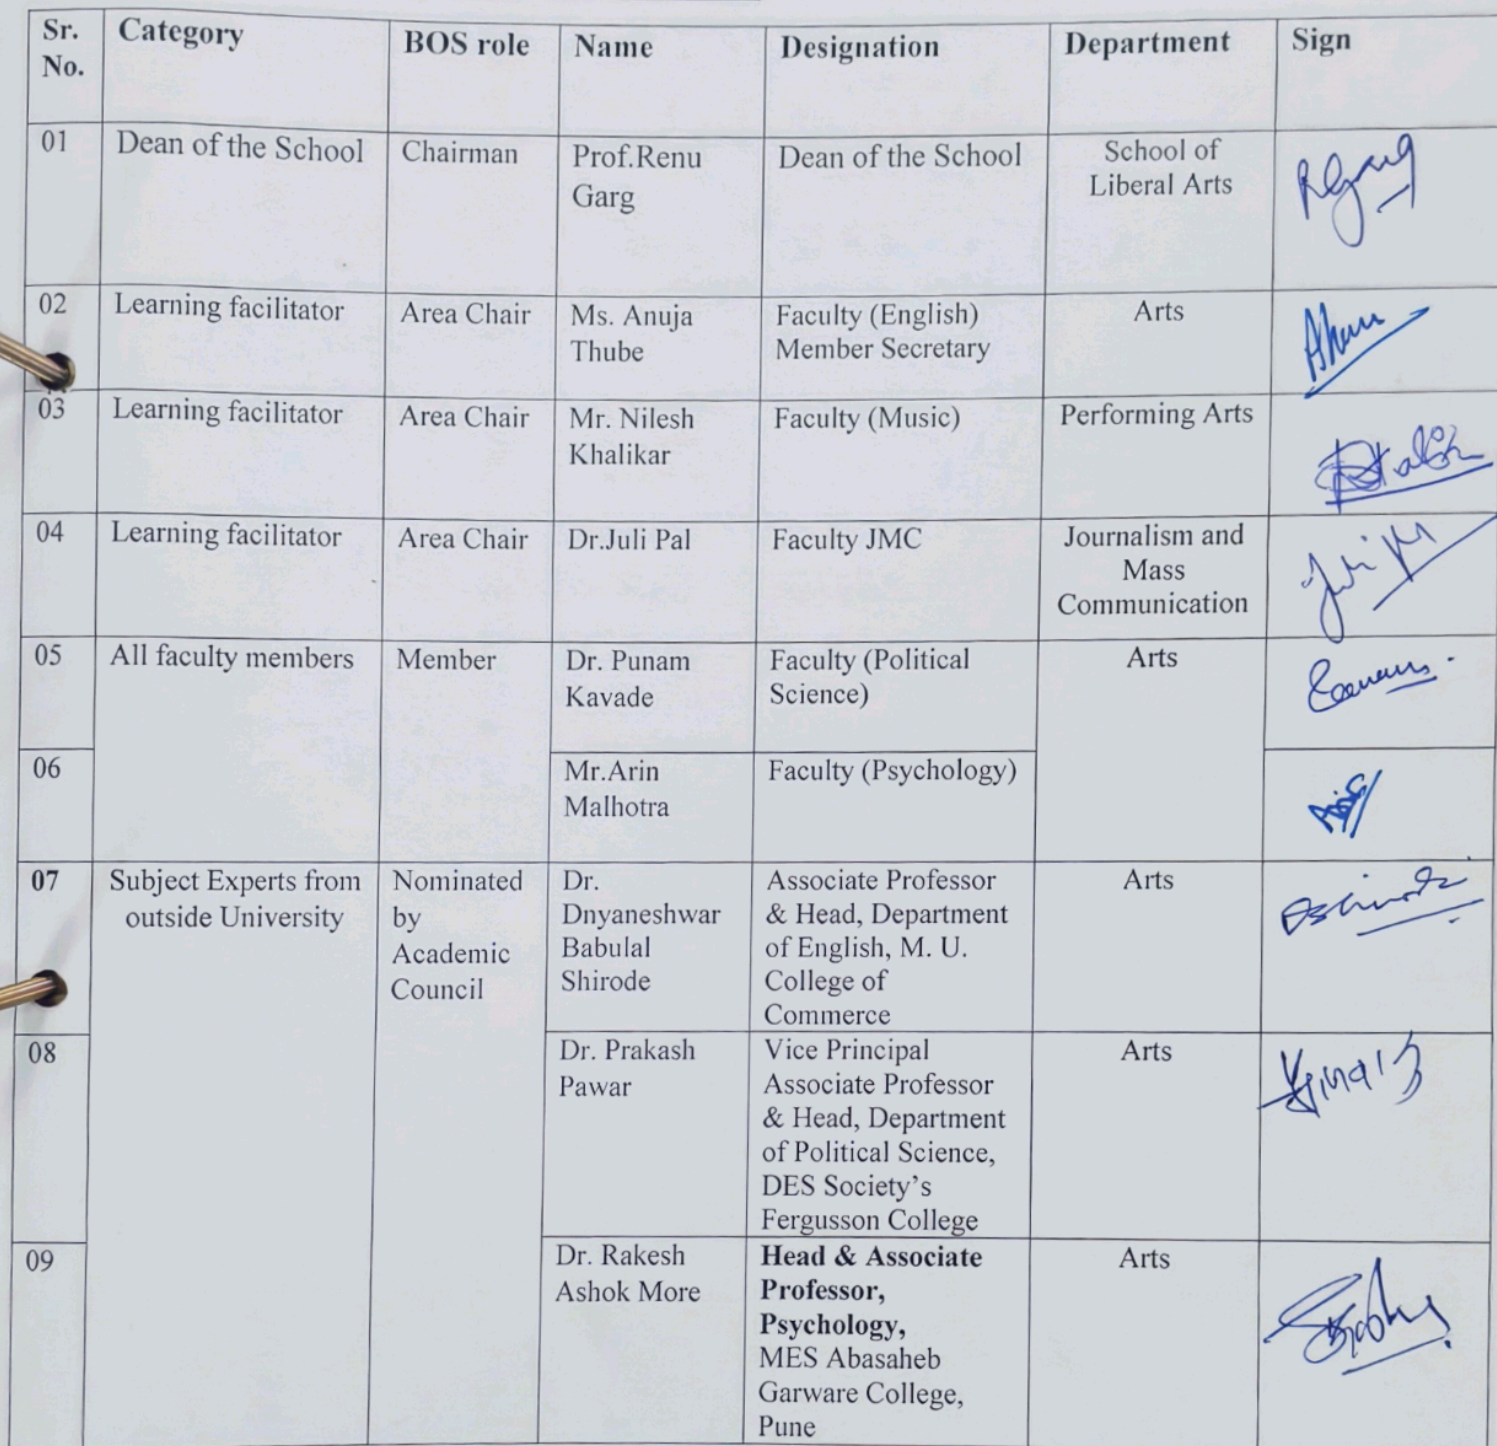 Sr. No.
Category
BOS role
Name
Designation
Department
Sign
01
Dean of the School
Chairman
Prof.Renu
Garg
Dean of the School
School of
Liberal Arts
RGarg
02
Learning facilitator
Area Chair
Ms. Anuja
Thube
Faculty (English)
Member Secretary
Arts
03
Learning facilitator
Area Chair
Mr. Nilesh
Khalikar
Faculty (Music)
Performing Arts
04
Learning facilitator
Area Chair
Dr.Juli Pal
Faculty JMC
Journalism and
Mass
Communication
05
All faculty members
Member
Dr. Punam
Kavade
Faculty (Political
Science)
Arts
06
Mr.Arin
Malhotra
Faculty (Psychology)
07
Subject Experts from
outside University
Nominated
by
Academic
Council
Dr.
Dnyaneshwar
Babulal
Shirode
Associate Professor
& Head, Department
of English, M. U.
College of
Commerce
Arts
08
Dr. Prakash
Pawar
Vice Principal
Associate Professor
& Head, Department
of Political Science,
DES Society’s
Fergusson College
Arts
09
Dr. Rakesh
Ashok More
Head & Associate
Professor,
Psychology,
MES Abasaheb
Garware College,
Pune
Arts